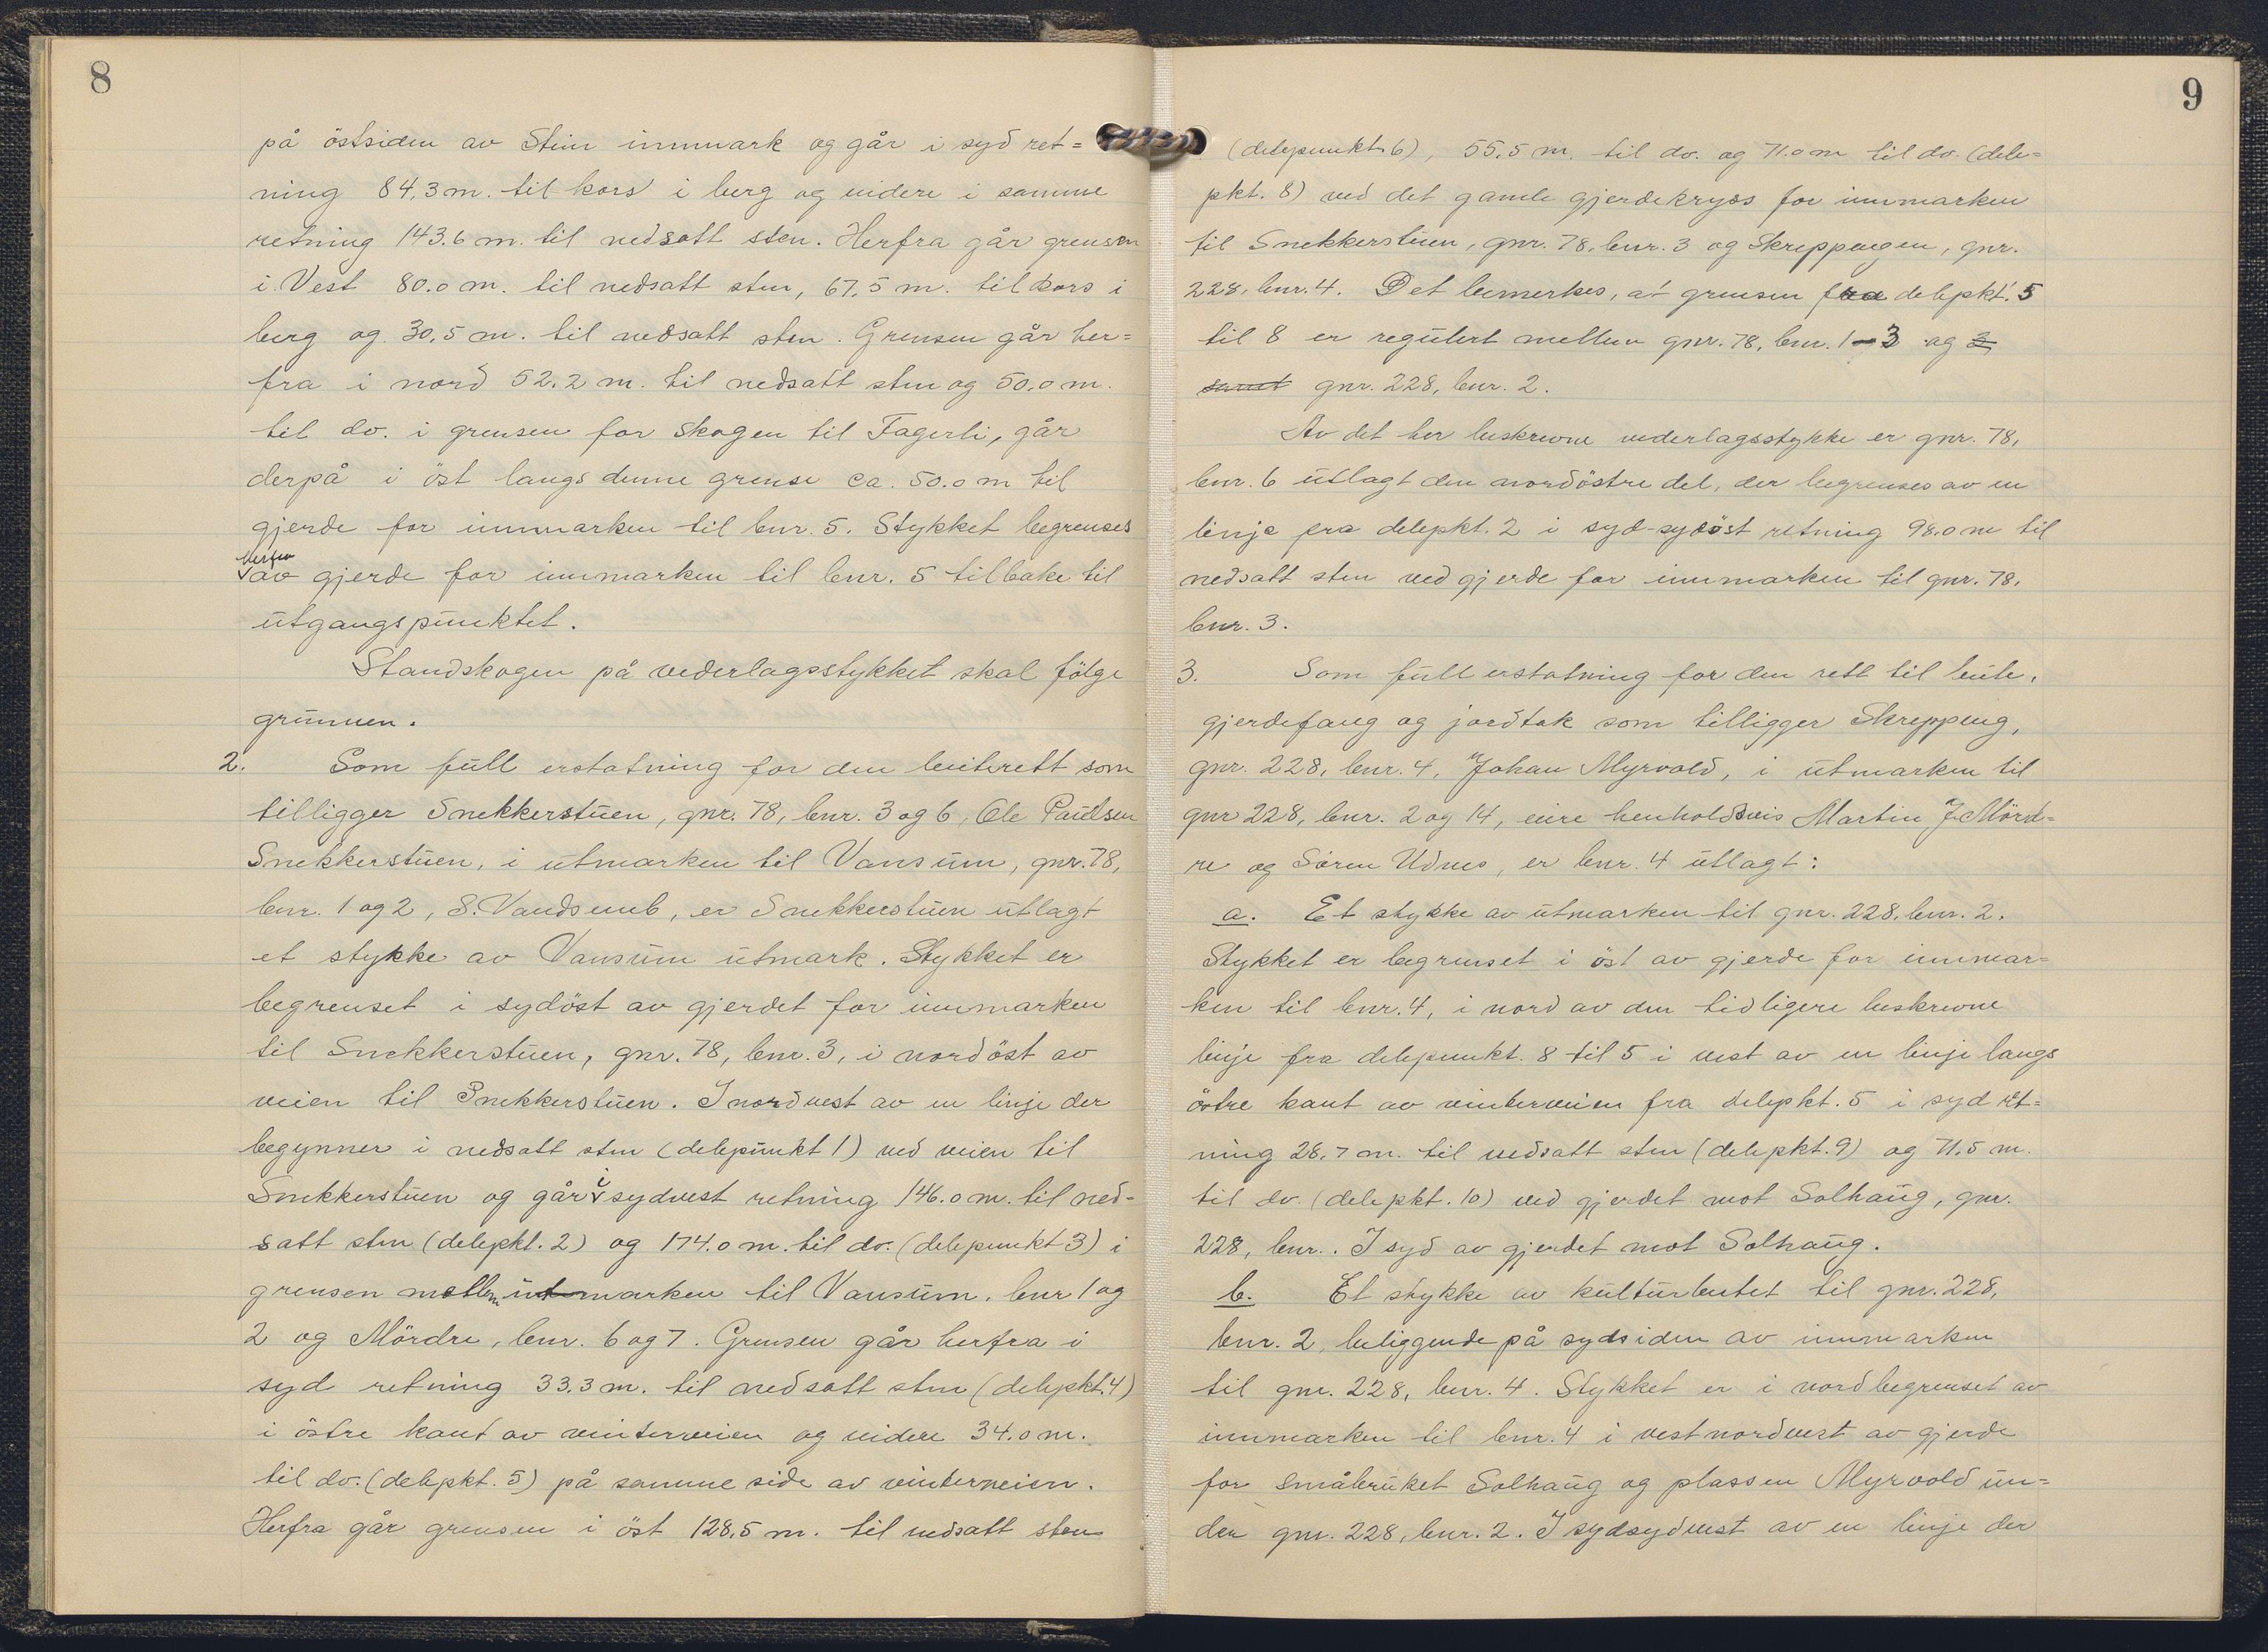 8
på östsiden av Stein innmark og går i syd ret=
ning 84,3 m. til kors i berg og videre i samme
retning 143.6 m. til nedsatt sten. Herfra går grensen
i Vest 80.0 m. til nedsatt sten, 67,5 m. til kors i
berg og 30,5 m. til nedsatt sten. Grensen går her=
fra i nord 52.2 m. til nedsatt sten og 50.0 m.
til do. i grensen for skogen til Fagerli, går
derpå i öst langs denne grense ca. 50.0 m til
gjerde for innmarken til bnr. 5. Stykket begrenses
herfra
av gjerde for innmarken til bnr. 5 tilbake til
utgangspunktet.
Standskogen på vederlagsstykket skal fölge
grunnen.
2. Som full erstatning for den beiterett som
tilligger Snekkerstuen, gnr. 78, bnr. 3 og 6, Ole Paulsen
Snekkerstuen, i utmarken til Vansum, gnr. 78,
bnr. 1 og 2, S. Vandsemb, er Snekkerstuen utlagt
et stykke av Vansum utmark. Stykket er
begrenset i sydöst av gjerdet for innmarken
til Snekkerstuen, gnr. 78, bnr. 3, i nordöst av
veien til Snekkerstuen. I nordvest av en linje der
begynner i nedsatt sten (delepunkt 1) ved veien til
Snekkerstuen og går i sydvest retning 146.0 m. til ned-
satt sten (delepkt. 2) og 174.0 m. til do. (delepunkt 3) i
grensen mellem utmarken til Vansum, bnr 1 og
2 og Mördre, bnr. 6 og 7. Grensen går herfra i
syd retning 33.3 m. til nedsatt sten (delepkt. 4)
i östre kant av vinterveien og videre 34.0 m.
til do. (delepkt. 5) på samme side av vinterveien.
Herfra går grensen i öst 128,5 m. til nedsatt sten
9
(delepunkt 6), 55,5 m. til do. og 71.0 m til do. (dele=
pkt. 8) ved det gamle gjerdekryss for innmarken
til Snekkerstuen, gnr. 78, bnr. 3 og Skreppengen, gnr.
228, bnr. 4. Det bemerkes, at grensen fra delepkt. 5
til 8 er regulert mellem gnr. 78, bnr. 1-3 og 3
samt gnr. 228, bnr. 2.
Av det her beskrevne vederlagsstykke er gnr. 78,
bnr. 6 utlagt den nordöstre del, der begrenses av en
linje fra delepkt. 2 i syd-sydöst retning 98.0 m til
nedsatt sten ved gjerde for innmarken til gnr. 78,
bnr. 3.
3. Som full erstatning for den rett til beite,
gjerdefang og jordtak som tilligger Skreppeng,
gnr. 228, bnr. 4, Johan Myrvold, i utmarken til
gnr 228, bnr. 2 og 14, eire henholdsvis Martin J. Mörd=
re og Sören Udnes, er bnr. 4 utlagt:
a. Et stykke av utmarken til gnr. 228, bnr. 2.
Stykket er begrenset i öst av gjerde for innmar=
ken til bnr. 4, i nord av den tidligere beskrevne
linje fra delepunkt. 8 til 5 i vest av en linje langs
östre kant av vinterveien fra delepkt. 5 i syd ret=
ning 28,7 m. til nedsatt sten (delepkt. 9) og 71,5 m.
til do. (delepkt. 10) ved gjerdet mot Solhaug, gnr.
228, bnr. . I syd av gjerdet mot Solhaug.
b. Et stykke av kulturbeitet til gnr. 228,
bnr. 2, beliggende på sydsiden av innmarken
til gnr. 228, bnr. 4. Stykket er i nord begrenset av
innmarken til bnr. 4 i vestnordvest av gjerde
for småbruket Solhaug og plassen Myrvold un=
der gnr. 228, bnr. 2. I sydsydvest av en linje der